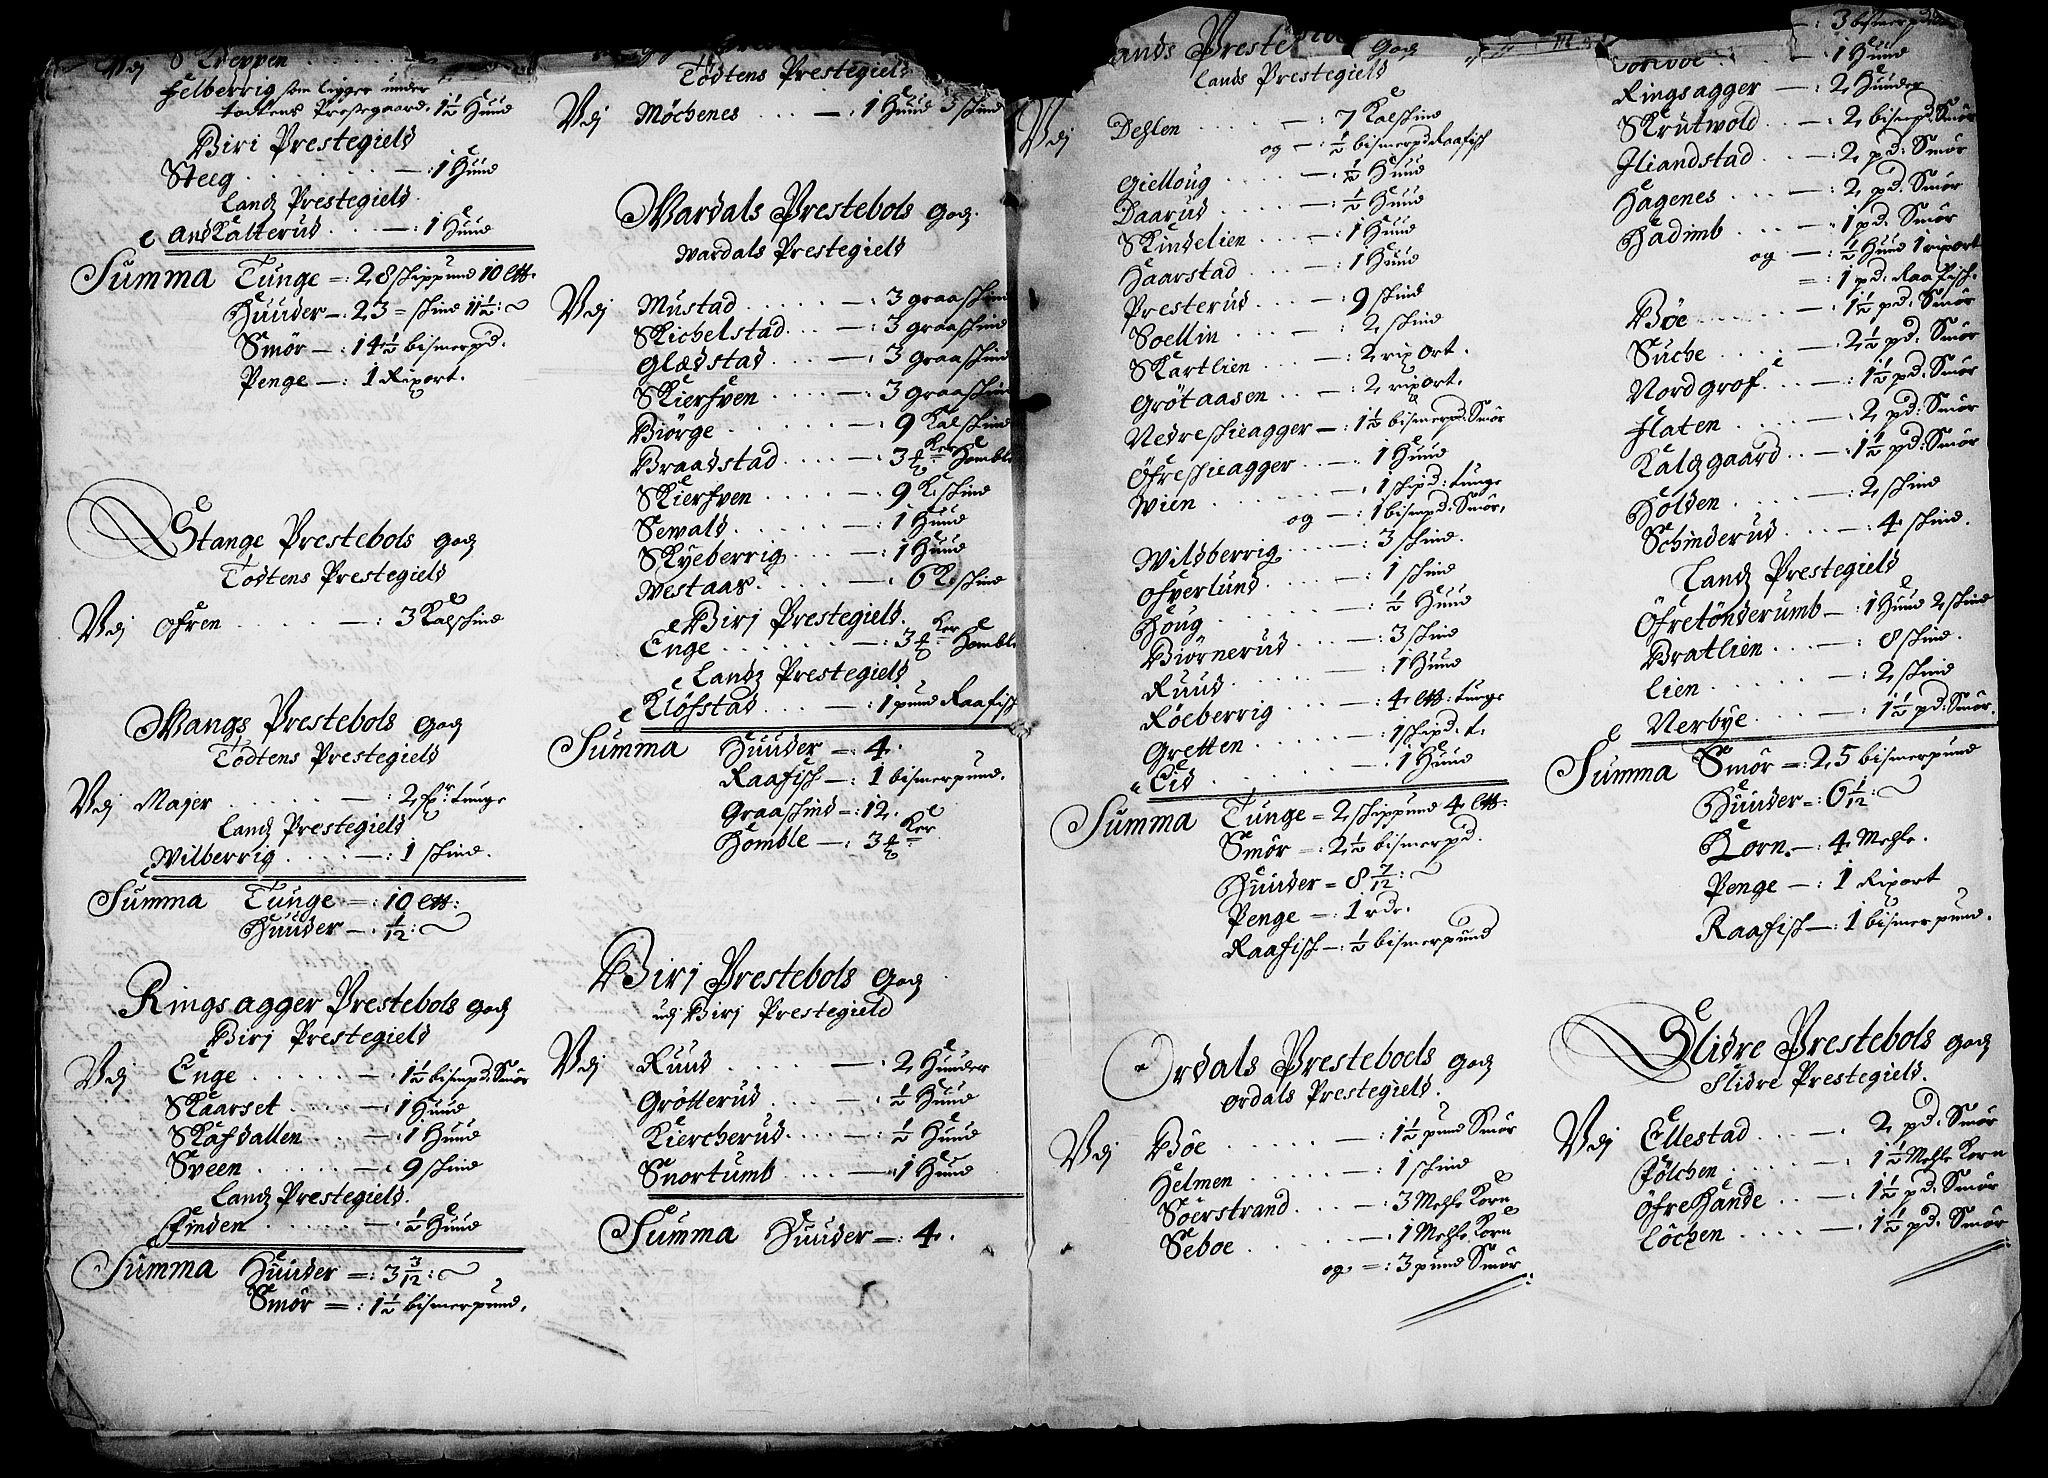 Vdj SKreppen
Felberrig som ligger under
todtens Prestegaard. 1½ Huud
Biri Prestegield
Steeg — : 1 Huud
Landz Prestegield
AndKalterud — : 1 Huud
Summa Tunge = : 28 skippund 10 L℔.
Huuder — : 23 = skind 11½ :
Smör — : 14½ bismerpd.
Penge — : 1 Riport.
Stange Prestebols Godz
Todtens Prestegield
Vdj Ofren — : 3 Kalskind
Wangs Prestebols Godz
Todtens Prestegield
Vdj Majer — : 2 fr. tunge
Landz Prestegield
Wilberrig — : 1 skind.
Summa Tunge — : 10 L℔:
Huuder — : 1/12 :
Ringsagger Prestebols Godz
Birj Prestegield
Vdj Enge — : 1½ bismpd: Smör
SKaarset — : 1 Huud
SKafdallen — : 1 Huud
Sveen — : 9 skind
Landz Prestegield.
Finden — : ½ Huud
Summa Huuder = : 3 3/12 :
Smör = : 1½ bismerpund.
Todtens Prestegield
Vdj Möchenes — : 1 Huud 3 skind
Wardals Prestebols Godz.
Wardals Prestegield
Vdj Mustad — : 3 graaskind
SKichelstad — : 3 graaskind
Glædstad — : 3 graaskind
SKierfven — : 3 graaskind
Biörge — : 9 Kalskind
Braadstad — : 3 ℔ Ker Homble
SKierfven — : 9 K. skind
Sewald — : 1 Huud
SKyeberrig — : 1 Huud
Westaas — : 6 K. skind
Birj Prestegield.
Enge — : 3 ℔ Ker Homble
Landz Prestegield
Klöfstad — : 1 pund Raafisk
Summa Huuder — : 4.
Raafisk — : 1 bismerpund.
Graaskind — : 12.
Homble — : 3 ℔ Ker
Birj Prestebols Godz
udj Birj Prestegield
Vdj Ruud — : 2 Huuder
Grötterud — : ½ Huud
Kiercherud — : ½ Huud
Snortumb — : 1 Huud
Summa Huuder — : 4.
Lands Prestebols Godz
Lands Prestegield
Vdj Dehlen — : 7 Kalskind
og — : ½ bismerpd Raafisk
Gielloug — : ½ Huud
Daarud — : ½ Huud
SKindelien — : 1 Huud
Haarstad — : 1 Huud
Presterud — : 9 skind
Soellin — : 2 skind
SKartlien — : 2 rix Ort.
Grötaasen — : 2 riport.
Nedreskieagger — : 1½ bismerpd: Smör
Öfreskieagger — : 1 Huud
Wien — : 1 skipd: tunge
og — : 1 bismpd: Smör.
Wildberrig — : 3 skind.
Ofverlund — : 1 skind
Houg — : ½ Huud
Biörnerud — : 3 skind
Ruud — : 1 Huud
Röeberrig — : 4 L℔: tunge
Gretten — : 1 skipd. t.
Eid — : 1 Huud
Summa Tunge = : 2 skippund 4 L℔:
Smör = : 2½ bismerpd.
Huuder = 8 7/12 :
Penge — : 1 rdr.
Raafisk — : ½ bismerpund
Ordals Presteboels Godz
Ordals Prestegield.
Vdj Böe — : 1½ pund Smör
Helmen — : 1 skind
Söerstrand — : 3 Mehle Korn
Seboe — : 1 Mehle Korn
og = : 3 pund Smör
— : 3 bismerpund
— : 1 Huud
Ringsagger — : 2 Huuder
SKrutwold — : 2 bismpd: Smör
Hiandstad — : 2 pd: Smör
Hagenes — : 2 pd. Smör
Hadimb — : 1 pd. Smör
og — : ½ Huud 1 riport
= : 1 pd. Raafisk.
Böe — : 1½ pd: Smör
Suche — : 2½ pd. Smör
Nordgrof — : 1½ pd: Smör
Flaten — : 2 pd: Smör
Kalsgaard — : 1½ pd: Smör
Holden — : 2 skind
Schinderud — : 4 skind.
Landz Prestegield
Öfretönderumb — : 1 Huud 2 skind
Bratlien — : 8 skind.
Lien — : 2 skind
Nerbye — : 1½ pd: Smör.
Summa Smör = : 25 bismerpund
Huuder = : 6 1/12 :
Korn. — : 4 Mehle.
Penge — : 1 Riport
Raafisk — : 1 bismerpund.
Slidre Prestebols Godz
Slidre Prestegield.
Vdj Ellestad — : 2 pd: Smör
Folchen — : 1½ Mehle Korn
ÖfreHande — : 1½ pd: Smör
Löchen — : 1½ pd. Smör